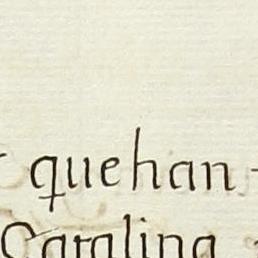 quehan
Caralina